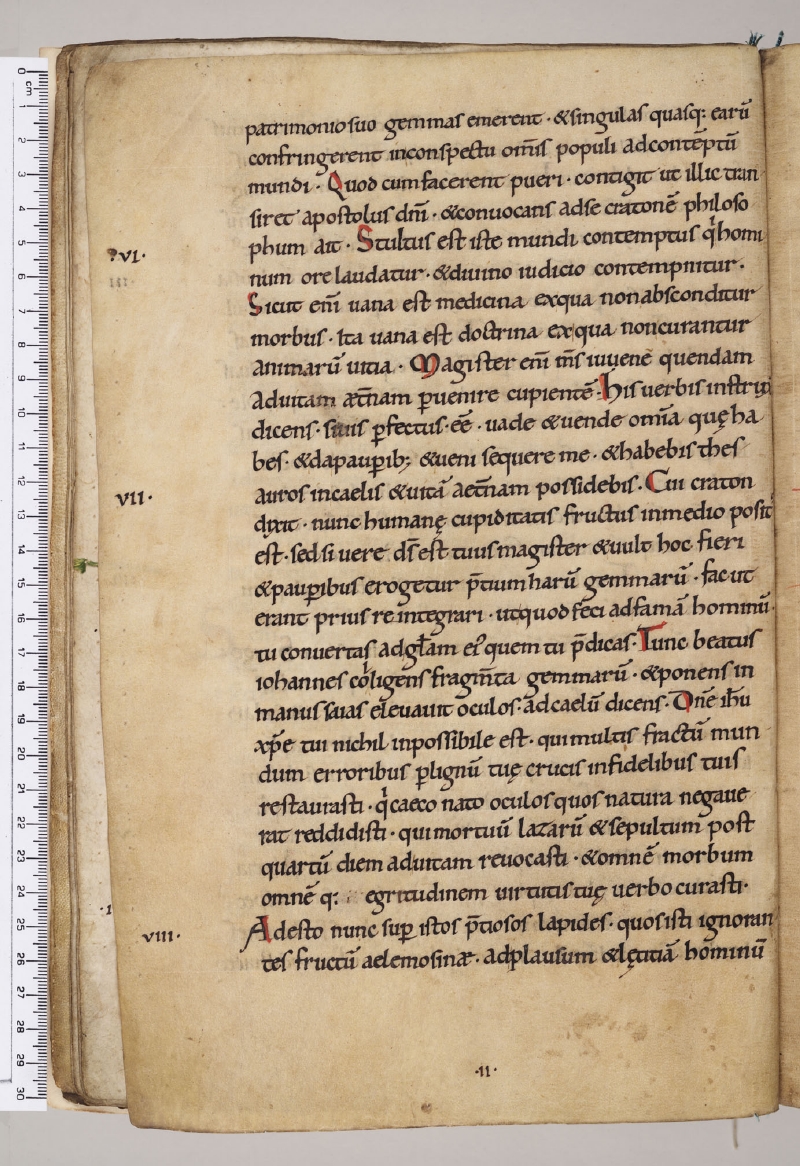 patrimonio suo gemmas emerent · & singulas quasq; earū
confringerent in conspectu om̅is populi ad contēptū
mundi · Quod cum facerent pueri · contigit ut illic tran
siret apostolus dn̅i · & conuocans ad se cratonē philoso
phum ait · Stultus est iste mundi contemptus q̇ homi
?VI·
num ore laudatur · & diuino iudicio contempnitur ·
Sicut eni̅ uana est medicina ex qua non absconditur
morbus · Ita uana est doctrina ex qua non curantur
animarū uitia · Magister eni̅ m̅s iuuenē quendam
ad uitam æt̅nam ꝑuenire cupientē · his uerbis
dicens · si uis ꝑfectus · ee̅ · uade & uende om̅ia quę ha
bes · & da pauꝑib; & ueni sequere me · & habebis thes
VII·
auros in caelis & uitā aet̅nam possidebis · Cui craton
dixit · nunc humanę cupiditatis fructus in medio posit
est · sed si uere ds̅ est tuus magister & uult hoc fieri
& pauꝑibus erogetur p̅tium harū gemmarū · fac ut
erant prius reintegrari · ut quod feci ad famā hominū
tu conuertas ad gl̅am ei᾽ quem tu p̅dicas · Tunc beatus
iohannes colligens fragm̅ta gemmarū · & ponens in
manus suas eleuauit oculos · ad caelū dicens · Dn̅e ih̅u
xp̅e tui nichil inpossibile est · qui multis fractū mun
dum erroribus ꝑ lignū tuę crucis infidelibus tuis
restaurasti · q̇ caeco nato oculos quos natura negaue
rat reddidisti · qui mortuū lazarū & sepultum post
quartū diem ad uitam reuocasti · & omnē morbum
omnē q: egritudinem uirtutis tuę uerbo curasti ·
VIII·
Adesto nunc suꝑ istos p̅tiosos lapides · quos isti ignoran
tes fructū aelemosinæ · ad plausum & lętitiā hominū
·II·